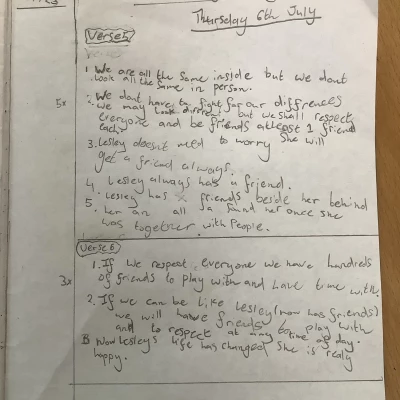 Thursday 6th July
Verse 5
1. We are all the same inside but we dont
look all the same in person.
5x
2. We dont have to fight for our diffrences
we may look diffrent but we shall respect
everyone and be friends atleast 1 friend
each.
3. Lesley doesnt need to worry she will
get a friend always.
4. Lesley always has a friend.
5. Lesley has friends beside her behind
her an all her once she
was together with people.
Verse 6
3x
1. If we respect everyone we have hundreds
of friends to play with and have time with.
2. If we can be like Lesley (now has friends)
we will have friends to play with
and to respect at any time of day.
3 Now Lesleys life has changed she is realy
happy.